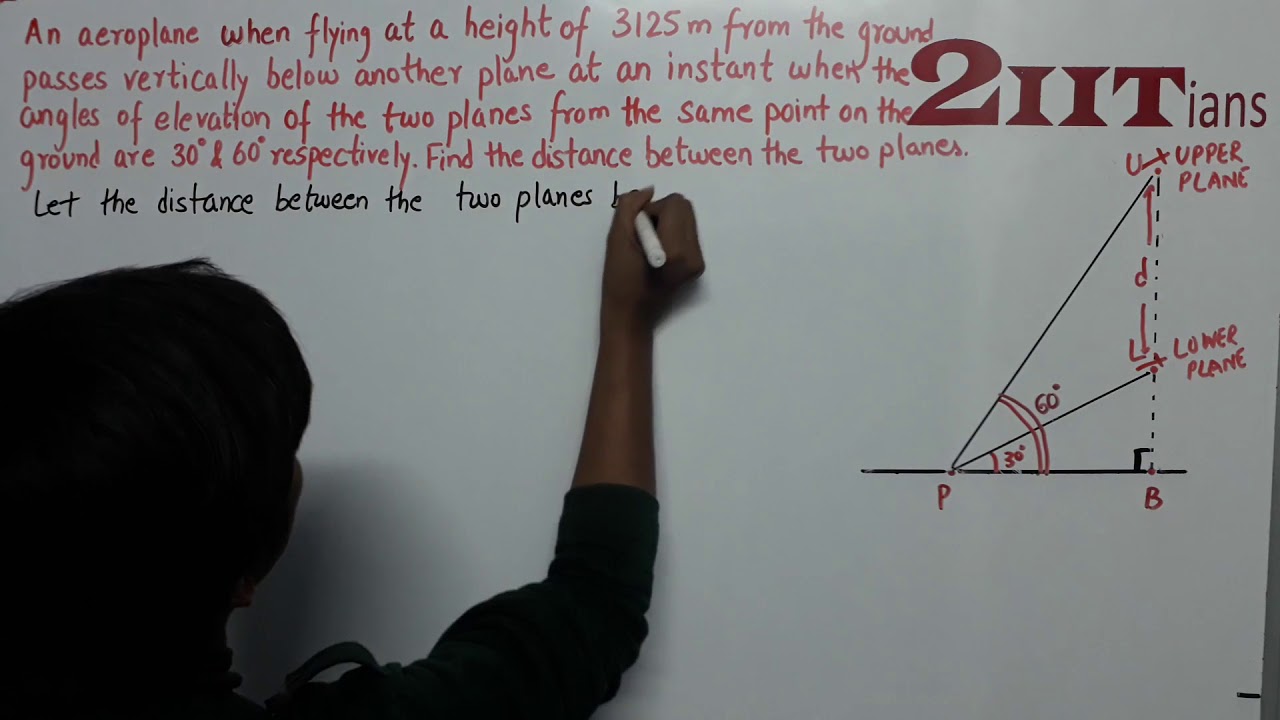 An aeroplane when flying at a height of 3125 m from the ground
passes vertically below another plane at an instant when the
angles of elevation of the two planes from the same point on the
ground are 30° & 60° respectively. Find the distance between the two planes.
Let the distance between the two planes
2IITians
U
UPPER
PLANE
d
L
LOWER
PLANE
60°
30°
P
B